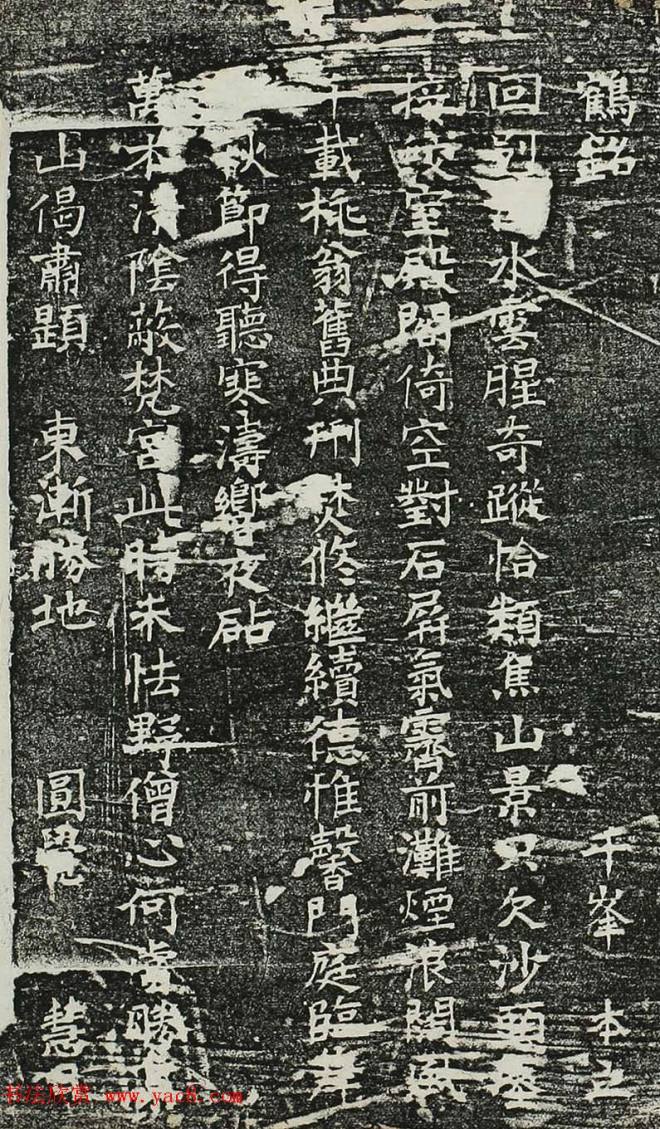 鶴銘　千峯　本立
回　水雲腥奇蹤恰類焦山景只欠沙
室殿閣倚空對石屛氣霽前灘煙浪闊
載旄翁舊典刑焚修繼續德惟馨門庭臨
秋節得聽寒濤響夜砧
萬木淸陰蔽梵宮此時未怯野僧心何處勝
山偈肅題　東漸勝地　圓覺　慧
书法欣赏 www.yac8.com